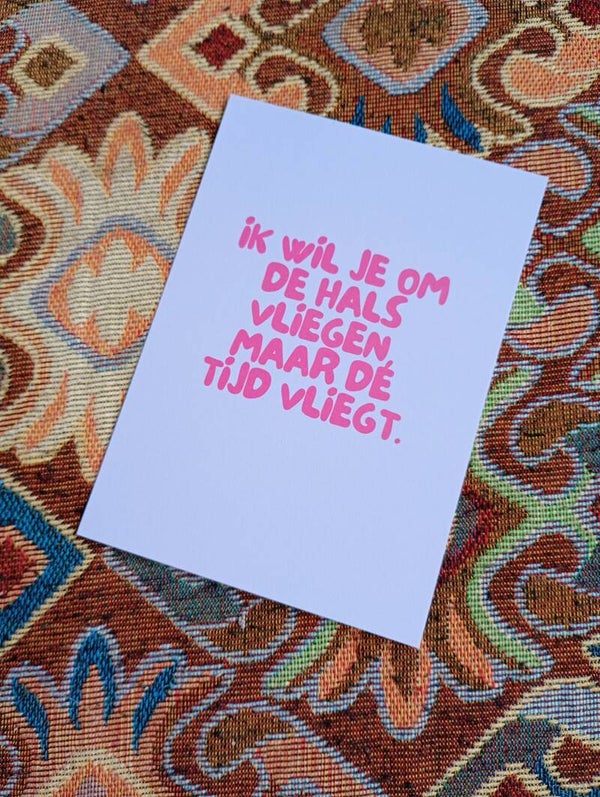 iK WiL JE OM
DE HALS
VLiEGEN,
MAAR DÉ
TiJD VLiEGT.